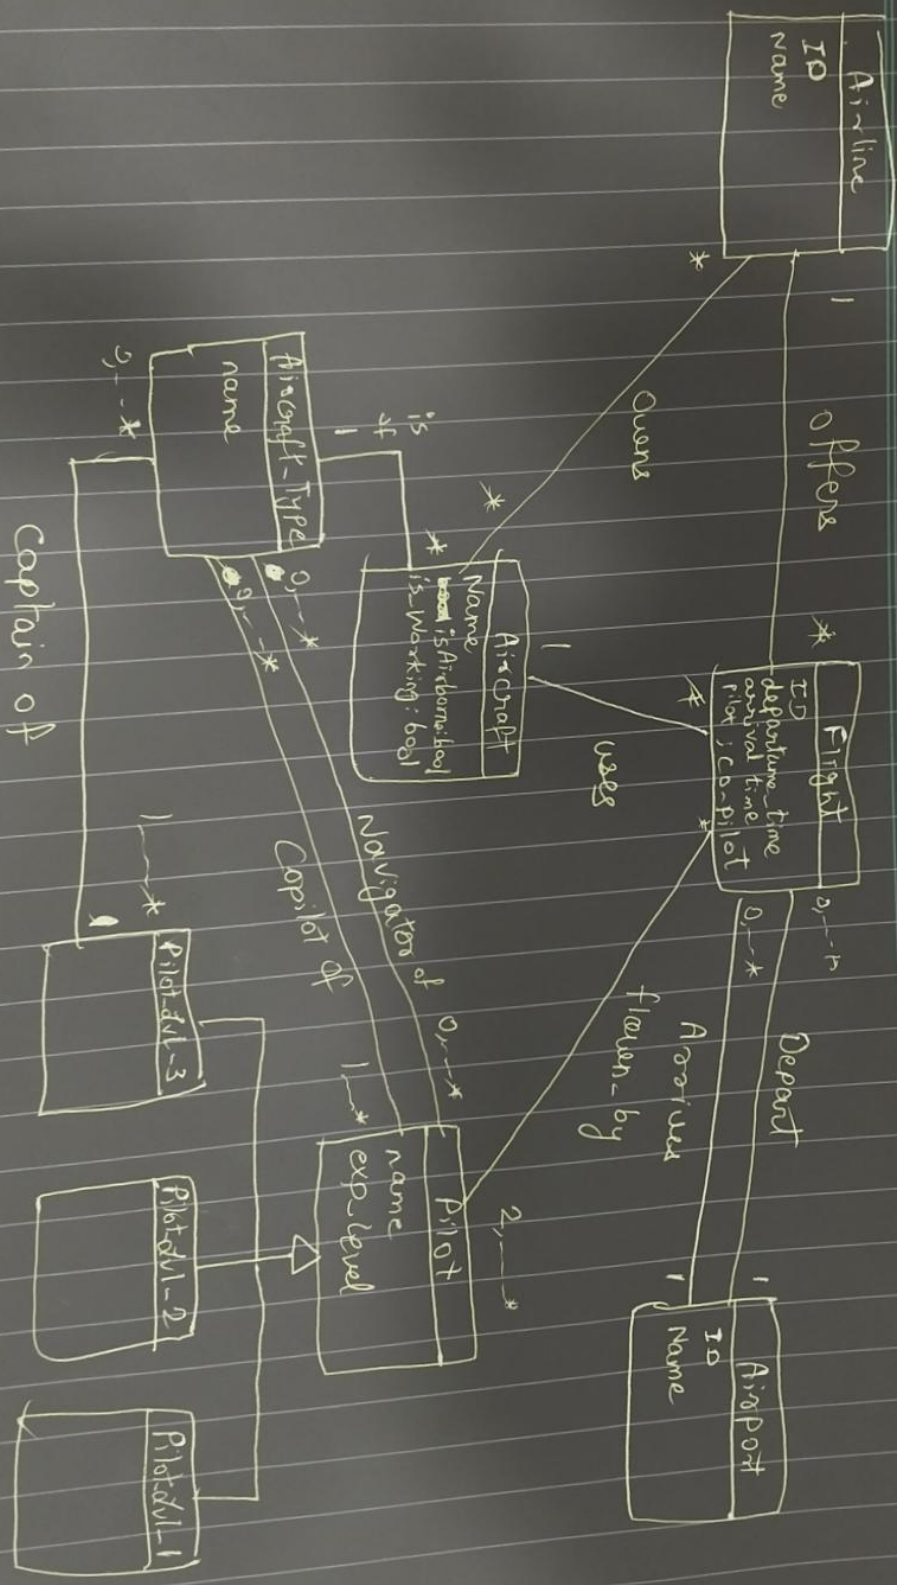 Airline
ID
Name
1
offers
*
Flight
ID
departure_time
arrival time
pilot ; co-pilot
0,--*
Depart
1
0,--*
Arrives
1
Airport
ID
Name
*
Owens
*
1
uses
*
*
flowen_by
2,---*
Aircraft
Name
isAirborne:bool
is_Working:bool
is
of
1
*
Aircraft_Type
name
0,--*
0,--*
Navigator of
0,--*
Copilot of
1--*
Pilot
name
exp_level
0,--*
Captain of
1---*
Pilot_lvl_3
Pilot_lvl_2
Pilot_lvl_1